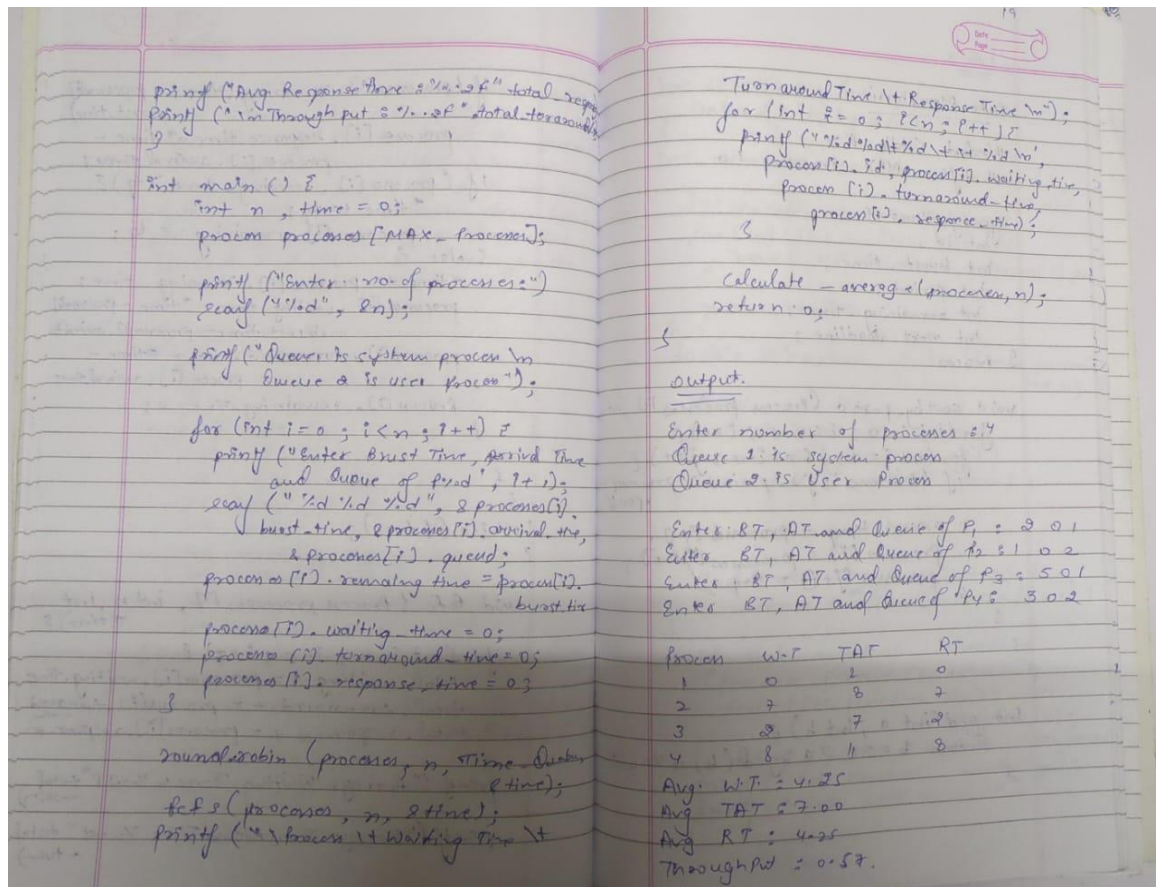 printf ("Avg Response time : %.2f" total_respo
printf ("\n Through put : %.2f", total_toraroundti
}
int main () {
int n, time = 0;
procen processes [MAX_Processes];
printf ("Enter no. of processes:")
scanf ("%d", &n);
printf ("Queue 1 is system process \n
Queue 2 is user process");
for (int i = 0; i < n; i++) {
printf ("Enter Brust Time, Arrival Time
and Queue of P%d", i+1);
scanf ("%d %d %d", & processes[i].
burst_time, & processes[i].arrival_time,
& processes[i].queue);
processes [i]. remaing time = process[i].
burst.tix
processes [i]. waiting_time = 0;
processes [i]. turnaround_time = 0;
processes [i]. response_time = 0;
}
round.robin (processes, n, Time_Quatum
& time);
fcfs (processes, n, &time);
printf ("\ Process \t Waiting Time \t
19
Date
Page
Turnaround Time \t Response Time \n");
for (int i = 0; i<n; i++) {
printf ("%d %d\t %d \t \t %d \n",
process[i].id, process[i].waiting_time,
process [i]. turnaround_time,
process[i]. responce_time);
}
Calculate _average (processes, n);
return 0;
}
output.
Enter number of processes : 4
Queue 1 is system process
Queue 2 is User Process
Enter BT, AT and Queue of P1 : 2 0 1
Enter BT, AT and Queue of P2 : 1 0 2
Enter BT, AT and Queue of P3 : 5 0 1
Enter BT, AT and Queue of P4 : 3 0 2
Process W.T TAT RT
1 0 2 0
2 7 8 7
3 2 7 2
4 8 11 8
Avg. W.T. : 4.25
Avg TAT : 7.00
Avg RT : 4.25
Throughput : 0.57.